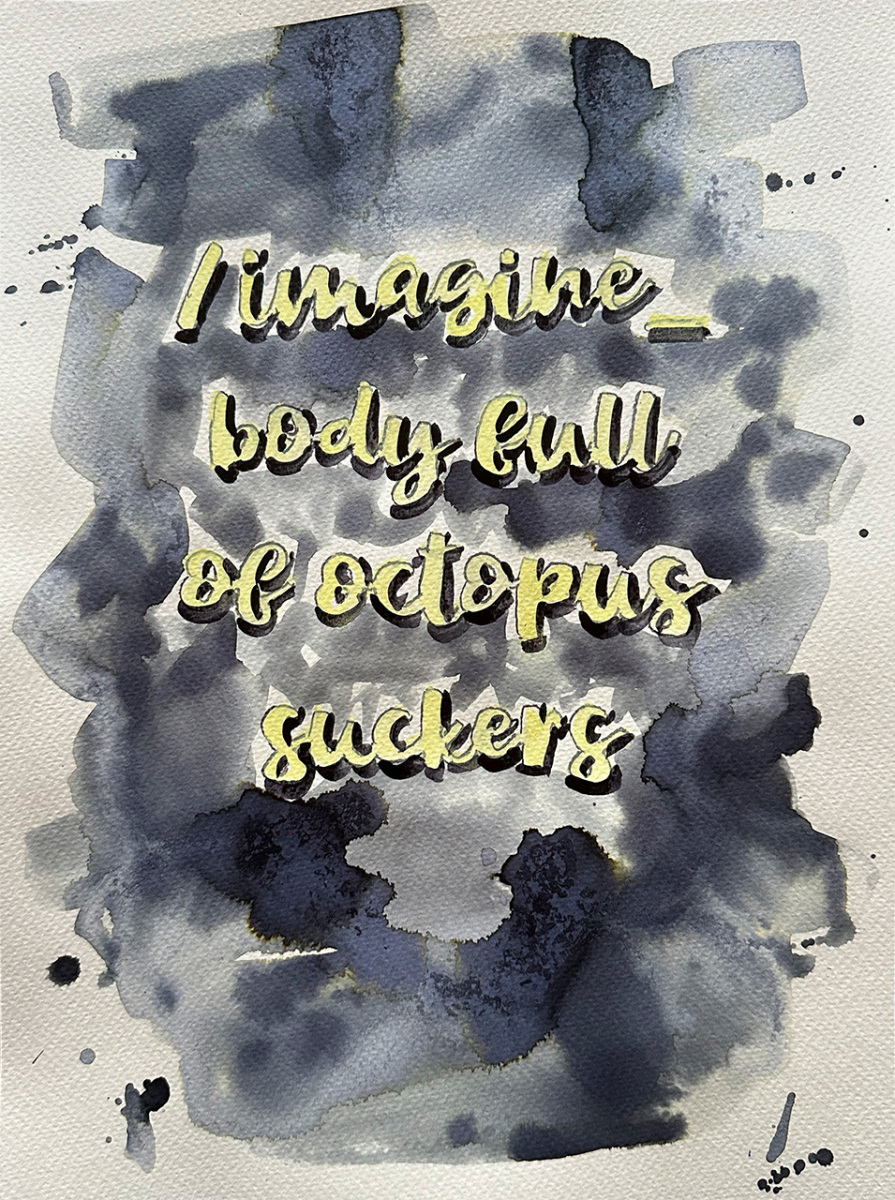 /imagine_
body full
of octopus
suckers